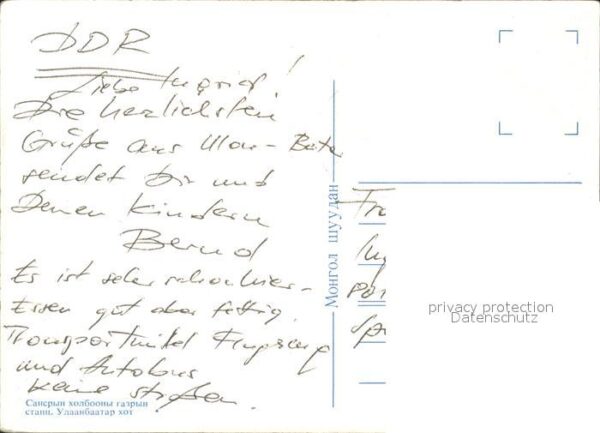 DDR
Liebe Ingrid!
Die herzlichsten
Grüße aus Ulan-Bata
sendet Dir und
Deinen Kindern
Bernd
Es ist sehr schön hier -
Essen gut aber fettig.
Transportmittel Flugzeug
und Autobus
keine Straßen.
Сансрын холбооны газрын
станц. Улаанбаатар хот
Монгол шуудан
Fra
In
privacy protection
Datenschutz